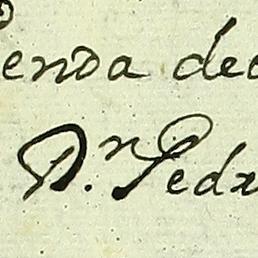 enda de
D.n Pedr